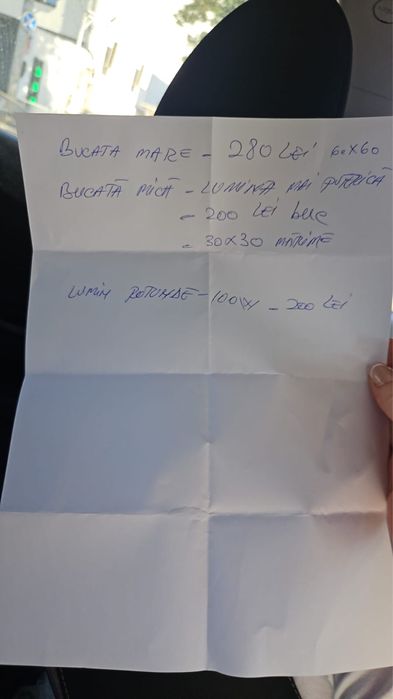 BUCATA MARE - 280 LEI 60X60
BUCATĂ MICĂ - LUMINA MAI PUTERICĂ
- 200 LEI buc
- 30X30 MĂRIME
LUMIN ROTUNDE - 100W - 200 LEI